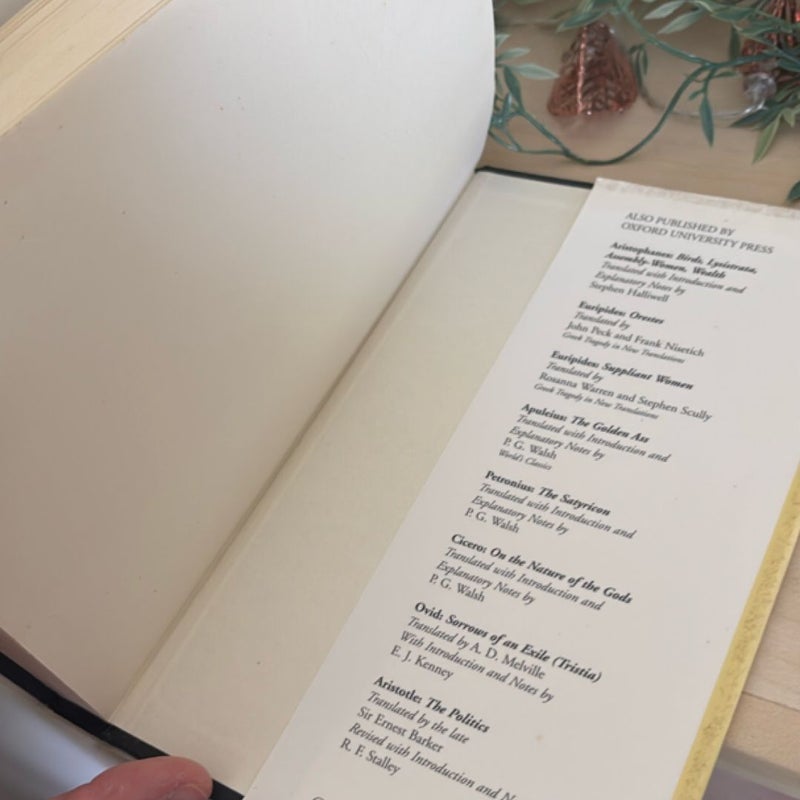 ALSO PUBLISHED BY
OXFORD UNIVERSITY PRESS
Aristophanes: Birds, Lysistrata,
Assembly-Women, Wealth
Translated with Introduction and
Explanatory Notes by
Stephen Halliwell
Euripides: Orestes
Translated by
John Peck and Frank Nisetich
Greek Tragedy in New Translations
Euripides: Suppliant Women
Translated by
Rosanna Warren and Stephen Scully
Greek Tragedy in New Translations
Apuleius: The Golden Ass
Translated with Introduction and
Explanatory Notes by
P. G. Walsh
World's Classics
Petronius: The Satyricon
Translated with Introduction and
Explanatory Notes by
P. G. Walsh
Cicero: On the Nature of the Gods
Translated with Introduction and
Explanatory Notes by
P. G. Walsh
Ovid: Sorrows of an Exile (Tristia)
Translated by A. D. Melville
With Introduction and Notes by
E. J. Kenney
Aristotle: The Politics
Translated by the late
Sir Ernest Barker
Revised with Introduction and
R. F. Stalley